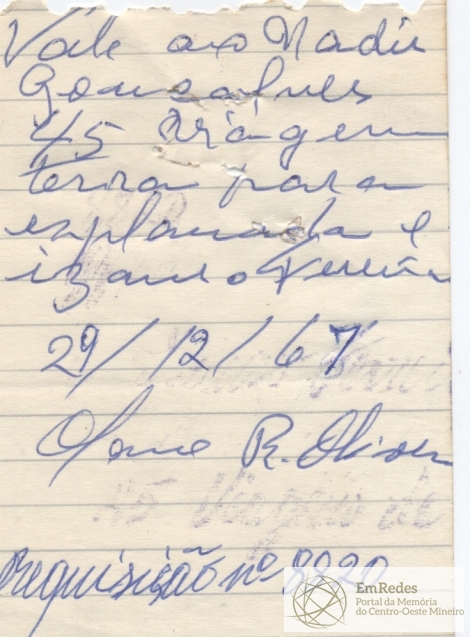 Vale ao Nadir
Gonsalves
45 viágem
terra para
esplanada e
29/12/67
R. Oliveir
requisição nº 8820
EmRedes
Portal da Memória
do Centro-Oeste Mineiro